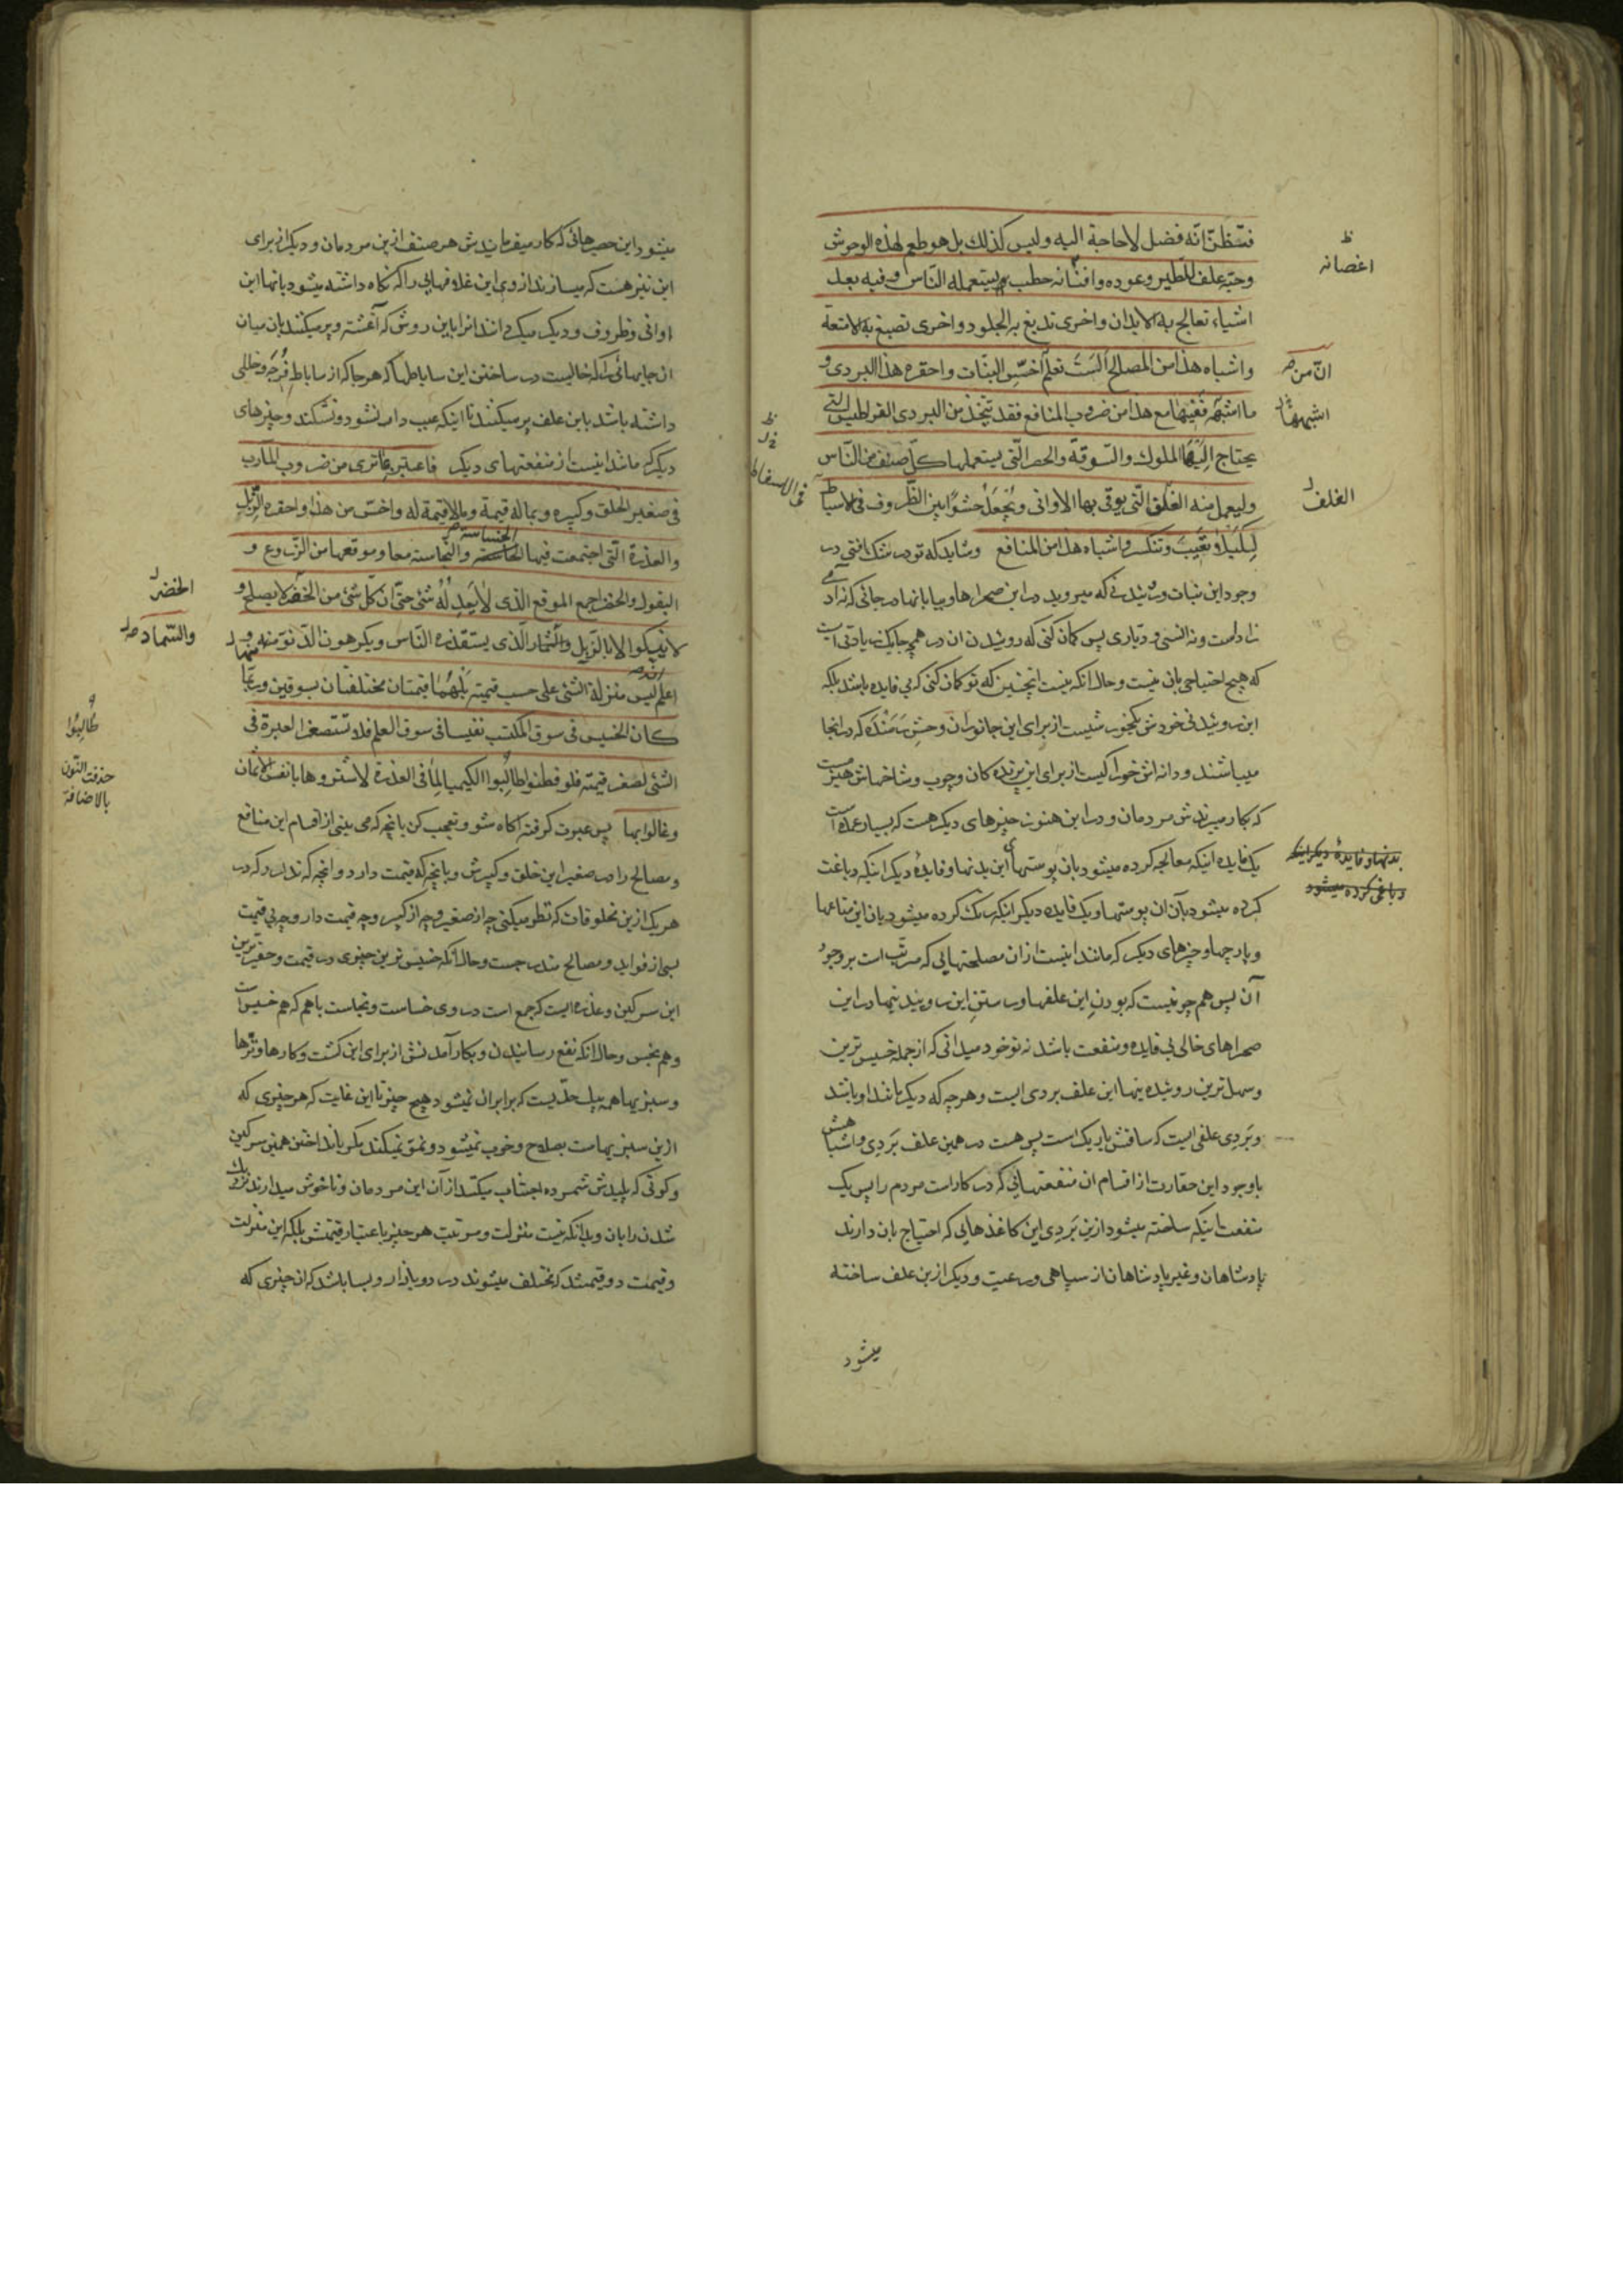 فتظنّ انّه فضل لاحاجة اليه وليس كذلك بل هو طعم لهذه الوحوش
وحبّه علف للطير وعوده وافنانه حطب يستعمله النّاس وفيه بعد
اشياء تعالج به الابدان واخرى تدبغ به الجلود واخرى تصبغ به الامتعة
واشباه هذا من المصالح الست تعلم اخسّ النبات واحقره هذا البردى و
ما اشبهه ففيها مع هذا من ضروب المنافع فقد يتّخذ من البردى القراطيس التى
يحتاج اليها الملوك والسّوقة والحصر الّتى يستعملها كلّ صنف من النّاس
وليعمل منه الغلق الّتى يوقى بها الاوانى ويجعل حشوًا بين الظّروف فى الاسباط
لكيلا تعيب وتنكسر واشباه هذا من المنافع وشايد كه تو در شك افتى در
وجود اين نبات ورسيدنى كه ميرويد در اين صحراها وبيابانها در جائى كه نه آدمى
زاد است ونه انسى وديّارى پس كمان كنى كه روئيدن آن در همچو جايى زيادتى است
كه هيچ احتياجى بان نيست وحال آنكه نيست اينچنين كه تو كمان كنى كه بي فايده باشد بلكه
اين روئيدنى خودش يكخورشيست از براى اين جانوران وحشِ رَمَنده كه در انجا
ميباشند ودانه اش خوراكيست از براى اين پرنده كان وچوب وشاخهاش هيزميست
كه بكار ميبرندش مردمان ودر اين هنوز چيزهاى ديكر هست كه بسيار عمده است
يك فايده اينكه معالجه كرده ميشود بان پوستهاى اين بدنها وفايدهٔ ديكر اينكه دباغت
كرده ميشود بآن ان پوستها ويك فايده ديكر اينكه رنك كرده ميشود بان اين متاعها
وپارچها وچيزهاى ديكر كه مانند اينست از ان مصلحتهايى كه مرتّب است بر وجود
آن پس همچو نيست كه بودنِ اين علفها ورستنِ اين روئيدنيها در اين
صحراهاى خالى بى فايده ومنفعت باشد نه تو خود ميدانى كه از جمله خسيس ترين
وسهل ترين روئيده نيها اين علف بردى است وهرچه كه ديكر مانند او باشد
وبَردى علفى است كه ساقش باريك است پس هست در همين علف بَردى واشباهش
با وجود اين حقارت از اقسام ان منفعتهايى كه در كار است مردم را پس يك
منفعت اينكه ساخته ميشود از ين بَردِى اين كاغذهايى كه احتياج بان دارند
پادشاهان وغير پادشاهان از سپاهى ورعيت وديكر از ين علف ساخته
ميشود
ظ
اغصانه
انّ من
اشبهها
الغلف
بدنها وفايدهٔ ديكر اينكه
دباغى كرده ميشود
ظ
فى الاسفاط
ميشود اين حصيرهائى كه كار ميفرمايندش هر صنف از ين مردمان وديكر از براى
اين نيز هست كه ميسازند از وى اين غلافهايى را كه نكاه داشته ميشود بانها اين
اوانى وظروف وديكر ميكردانند انرا باين روش كه آغشته وپر ميكنند بان ميان
ان جايهائى را كه خاليست در ساختن اين ساباطها كه هر جا كه از ساباط فُرجَه وخللى
داشته باشد باين علف پر ميكنند تا اينكه عيب دار نشود ونشكند وچيزهاى
ديكر كه مانند اينست از منفعتهاى ديكر فاعتبر بما ترى من ضروب المآرب
فى صغير الخلق وكبيره وبما له قيمة وما لا قيمة له واخسّ من هذا واحقره الزّبل
والعذرة الّتى اجتمعت فيها الخساسته والنّجاسته معا وموقعها من الزّروع و
البقول والخضر اجمع الموقع الّذى لا يعدله شئ حتّى انّ كلّ شئ من الخضر لا يصلح و
لا يزكوا الا بالزّبل والسّماد الّذى يستقذره النّاس ويكرهون الدّنوّ منه و
اعلم انّه ليس منزلة الشّئ على حسب قيمته بل هُما قيمتان مختلفتان بسوقين وربّما
كان الخسيس فى سوق المكتسب نفيسا فى سوق العلم فلا تستصغر العبرة فى
الشّئ لصغر قيمته فلو فطنوا طالبوا الكيميا لما فى العذرة لاشتروها بانفس الاثمان
وغالوا بها پس عبرت كرفته اكاه شو وتعجب كن بانچه كه مى بينى از اقسام اين منافع
ومصالح را در صغير اين خلق وكبيرش وبانچه كه قيمت دارد وانچه كه ندارد كه در
هر يك از ين مخلوقات كه نظر ميكنى چه از صغير وچه از كبير وچه قيمت دار وچه بى قيمت
بسى از فوايد ومصالح مندرجست وحال آنكه خسيس ترين چيزى در قيمت وحقير ترين
اين سركين وعذره ايست كه جمع است در وى خساست ونجاست باهم كه هم خسيس است
وهم نجس وحال انكه نفع رسانيدن وبكار آمدنش از براى اين كشت وكارها وترّها
وسبزيها همه بيك حدّيست كه برابر ان نميشود هيچ چيز تا اين غايت كه هر چيزى كه
از ين سبزيهاست بصلاح وخوب نميشود ونموّ نميكند مكر بانداختن همين سركين
وكوتى كه پليدش شمرده اجتناب ميكنند از آن اين مردمان وناخوش ميدارند نزديك
شدن را بان وبدانكه نيست منزلت ومرتبت هر چيز باعتبار قيمتش بلكه اين منزلت
وقيمت دو قيمتند كه مختلف ميشوند در دو بازار وبسا باشد كه ان چيزى كه
الخضر
والسّماد
طالِبُوا
حذفت النّون
بالاضافة